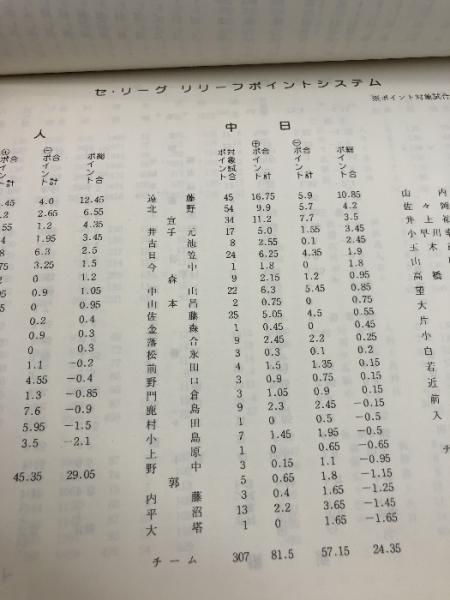 セ・リーグ リリーフポイントシステム
※ポイント対象試合
人 中日
⊕合ポイント計 ⊖合ポイント計 総合ポイント 対象試合ポイント ⊕合ポイント計 ⊖合ポイント計 総合ポイント
.45 4.0 12.45 遠藤 45 16.75 5.9 10.85 山内
.2 2.65 6.55 北野 54 9.9 5.7 4.2 佐々岡
.55 1.2 4.35 宣 34 11.2 7.7 3.5 井上
.4 1.95 3.45 井元 17 5.0 1.55 3.45 小早川
.8 6.3 2.5 古池 8 2.55 0.1 2.45 玉木
.75 3.25 1.5 日笠 24 6.25 4.35 1.9 山
.2 0 1.2 今中 1 1.8 0 1.8 高橋
.95 0.9 1.05 森 9 2.15 1.2 0.95 望
0 0.95 中山 22 6.3 5.45 0.85 大
0.2 0.4 山本昌 2 0.75 0 0.75 片
0.9 0.3 佐藤 25 5.05 4.5 0.55 小
0 0.3 金森 1 0.45 0 0.45 白
1.1 −0.2 落合 9 2.45 2.2 0.25 若
4.55 −0.4 松永 3 0.3 0.1 0.2 近
1.3 −0.85 前田 4 1.5 1.35 0.15 前
7.6 −0.9 野口 3 0.9 0.75 0.15 入
5.95 −1.5 門倉 3 1.05 0.9 0.15
3.5 −2.1 鹿島 9 2.3 2.45 −0.15
村田 1 0 0.5 −0.5
小島 7 1.45 1.95 −0.5
上原 1 0 0.65 −0.65
野中 3 0.15 1.1 −0.95
45.35 29.05 郭 5 0.65 1.8 −1.15
内藤 3 0.4 1.65 −1.25
平沼 13 2.2 3.65 −1.45
大塔 1 0 1.65 −1.65
チーム 307 81.5 57.15 24.35